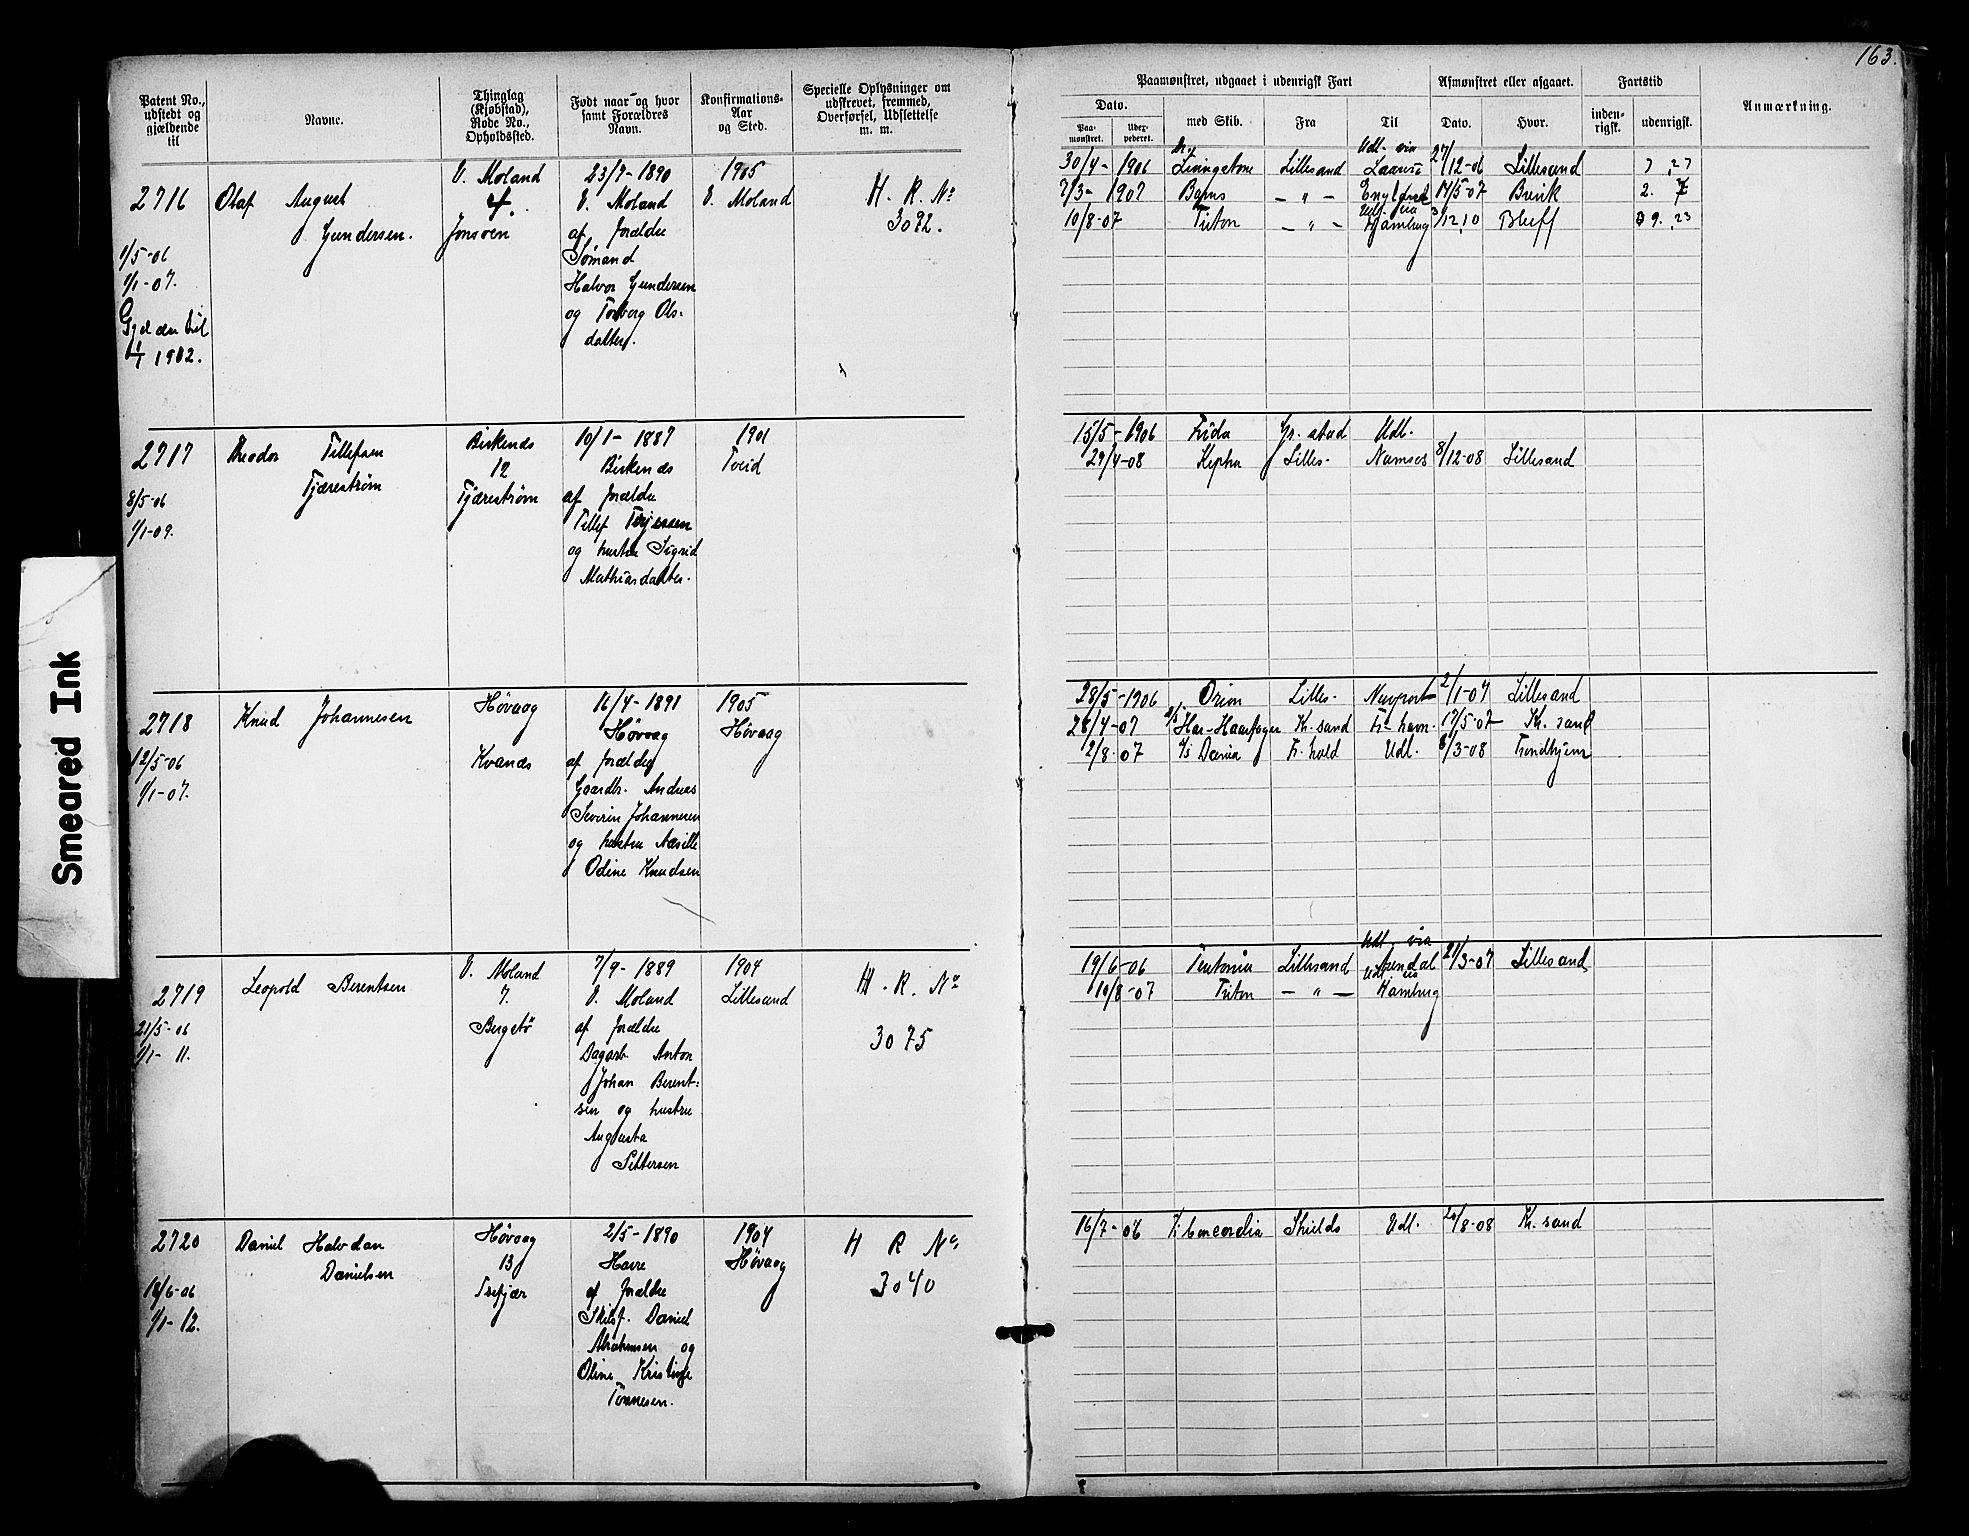 163.
Patent No., udstedt og gjældende til
Navne.
Thinglag (Kjøbstad), Rode No., Opholdssted.
Født naar og hvor samt Forældres Navn.
Konfirmations-Aar og Sted.
Specielle Oplysninger om udskrevet, fremmed, Overførsel, Udslettelse m. m.
Paamønstret, udgaaet i udenrigsk Fart
Dato.
Paamønstret.
Uderpederet.
med Skib.
Fra
Til
Afmønstret eller afgaaet.
Dato.
Hvor.
Fartstid
indenrigsk.
udenrigsk.
Anmærkning.
2716
1/5-06
1/1-07.
Gjelden til
1/1 1912.
Olaf August
Gundersen.
V. Moland
4.
Jonsven
23/7-1890
V. Moland
af forældre
Sømand
Halvor Gundersen
og Torborg Ols-
datter.
1905
V. Moland
H. R. No
3072.
30/4-1906 Livingstone Lillesand Udl. via 27/12-06 Lillesand 7 . 27
7/3-1907 Børns — " — England 14/5-07 Brevik 2.
10/8-07 Triton — " — Udl. via Hamburg 3/12.10 Bluff 9. 23
2717
8/5-06
1/1-09.
Theodor Tellefsen
Tjærestrøm
Birkenæs
12
Tjærestrøm
10/1-1887
Birkenæs
af forældre
Tellef Terjesen
og hustru Sigrid
Mathiasdatter.
1901
Tveid
15/5-1906 Frida Gr. stad Udl.
29/4-08 Kepha Lilles- Namsos 8/12-08 Lillesand
2718
12/5-06
1/1-07.
Knud Johannesen
Høvaag
Kvanæs
16/4-1891
Høvaag
af forældre
Gaardbr. Andreas
Severin Johannesen
og hustru
Odine Knudsen
1905
Høvaag
28/5-1906 Orion Lilles- Newport 2/1-07 Lillesand
28/4-07 Har-Haarfager K. sand Fr havn. 17/5-07 Kr. sand
2/8-07 D/S Dania Fr. hald Udl. 8/3-08 Trondhjem
2719
21/5-06
1/1-11.
Leopold Berentsen
V. Moland
7.
Bergstø
7/9-1889
V. Moland
af forældre
Dagarb. Anton
Johan Berent-
sen og hustru
Augusta
Pettersen
1904
Lillesand
H. R. No
3075
19/6-06 Teutonia Lillesand Udl. via Arendal 21/3-07 Lillesand
10/8-07 Triton — " — Udl via Hamburg
2720
18/6-06
1/1-12.
Daniel Halvdan
Danielsen
Høvaag
13
Trefjær
2/5-1890
Havre
af forældre
Skibsf. Daniel
Abrahamsen og
Oline Kristine
Tønnesen.
1904
Høvaag
H R No
3040
16/7-06 Concordia Shields Udl. 24/8-08 Kr. sand
Smeared Ink